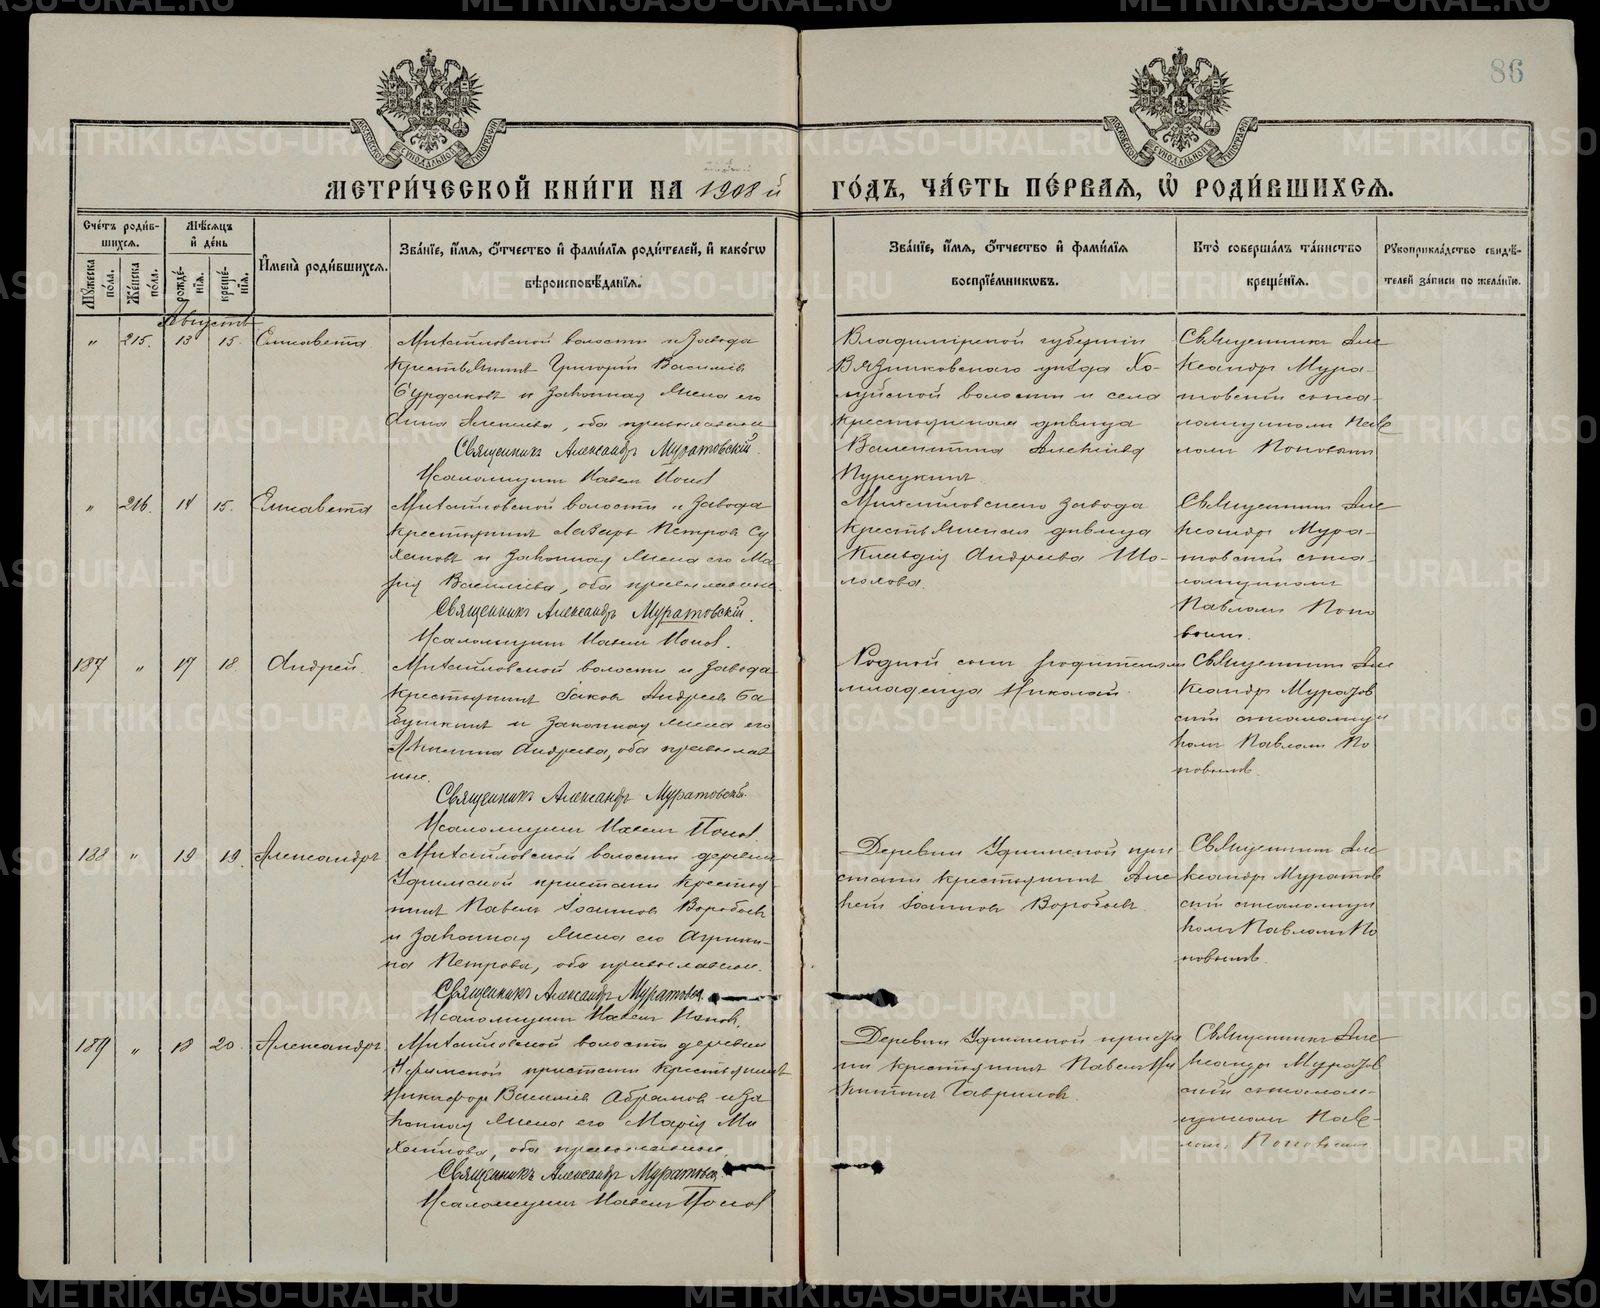 86
МЕТРИ́ЧЕСКОЙ КНИ́ГИ НА 1908 й
ГО́ДЪ, ЧА́СТЬ ПЕ́РВАЯ, Ѡ҆ РОДИ́ВШИХСЯ.
Сче́тъ роди́в-
шихся.
Мѣ́сяцъ
и҆ де́нь
Мꙋ́жеска
по́ла.
Же́нска
по́ла.
рожде́-
нїя.
креще́-
нїя.
И҆мена̀ роди́вшихся.
Зва́нїе, и҆́мя, ѻ҆́тчество и҆ фами́лїя роди́телей, и҆ како́гѡ
вѣроисповѣ́данїя.
Зва́нїе, и҆́мя, ѻ҆́тчество и҆ фами́лїя
воспрїе́мниковъ.
Кто̀ соверша́лъ та́инство
креще́нїя.
Рꙋкоприкла́дство свидѣ́-
телей за́писи по жела́нїю.
Августъ
" 215. 13 15. Елисавета
Михайловской волости и завода
крестьянинъ Григорій Василіевъ
Бурдаковъ и законная жена его
Анна, оба православные
Священникъ Александръ Муратовскій.
Псаломщикъ Павелъ Попов
Владимірской губерніи
Вязниковскаго уѣзда Хо-
луйской волости и села
крестьянская дѣвица
Валентина Алексіева
Священникъ Але
ксандръ Мура-
товскій съ пса-
ломщикомъ Пав
ломъ Поповымъ
" 216. 14 15. Елисавета
Михайловской волости и завода
крестьянинъ Лазарь Петровъ Су
хановъ и законная жена его Ма
рія Василіева, оба православные.
Священникъ Александръ Муратовскій.
Псаломщикъ Павелъ Попов.
Михайловскаго завода
крестьянская дѣвица
Клавдія Андреева Шо-
лохова.
Священникъ Але
ксандръ Мура-
товскій съ пса-
ломщикомъ
Павломъ Попо
вымъ.
187 " 17 18. Андрей.
Михайловской волости и завода
крестьянинъ Іаковъ Андреевъ Ба
бушкинъ и законная жена его
Андреева, оба православ
ные.
Священникъ Александръ Муратовскій.
Псаломщикъ Павелъ Попов
Родной сынъ родителям
младенца Николай.
Священникъ Але
ксандръ Муратов
скій съ псаломщи
комъ Павломъ По
повымъ.
188 " 19 19. Александръ
Михайловской волости деревни
Уфимской пристани крестья
нинъ Павелъ Іоанновъ Воробьевъ
и законная жена его Агрипи-
на Петрова, оба православные.
Священникъ Александръ Муратовск
Псаломщикъ Павелъ Попов.
Деревни Уфимской при
стани крестьянинъ Але
ксѣй Іоанновъ Воробьевъ.
Священникъ Але
ксандръ Муратов
скій съ псаломщи
комъ Павломъ По
повымъ.
189 " 18 20. Александръ
Михайловской волости деревни
Уфимской пристани крестьянинъ
Никифоръ Василіевъ Абрамовъ и за
конная жена его Марія Ми
хайлова, оба православные.
Священникъ Александръ Муратовск
Псаломщикъ Павелъ Попов
Деревни Уфимской приста
ни крестьянинъ Павелъ Ни
китинъ Гавриловъ.
Священникъ Але
ксандръ Муратов
скій съ псалом-
щикомъ Пав-
ломъ Поповымъ
METRIKI.GASO-URAL.RU